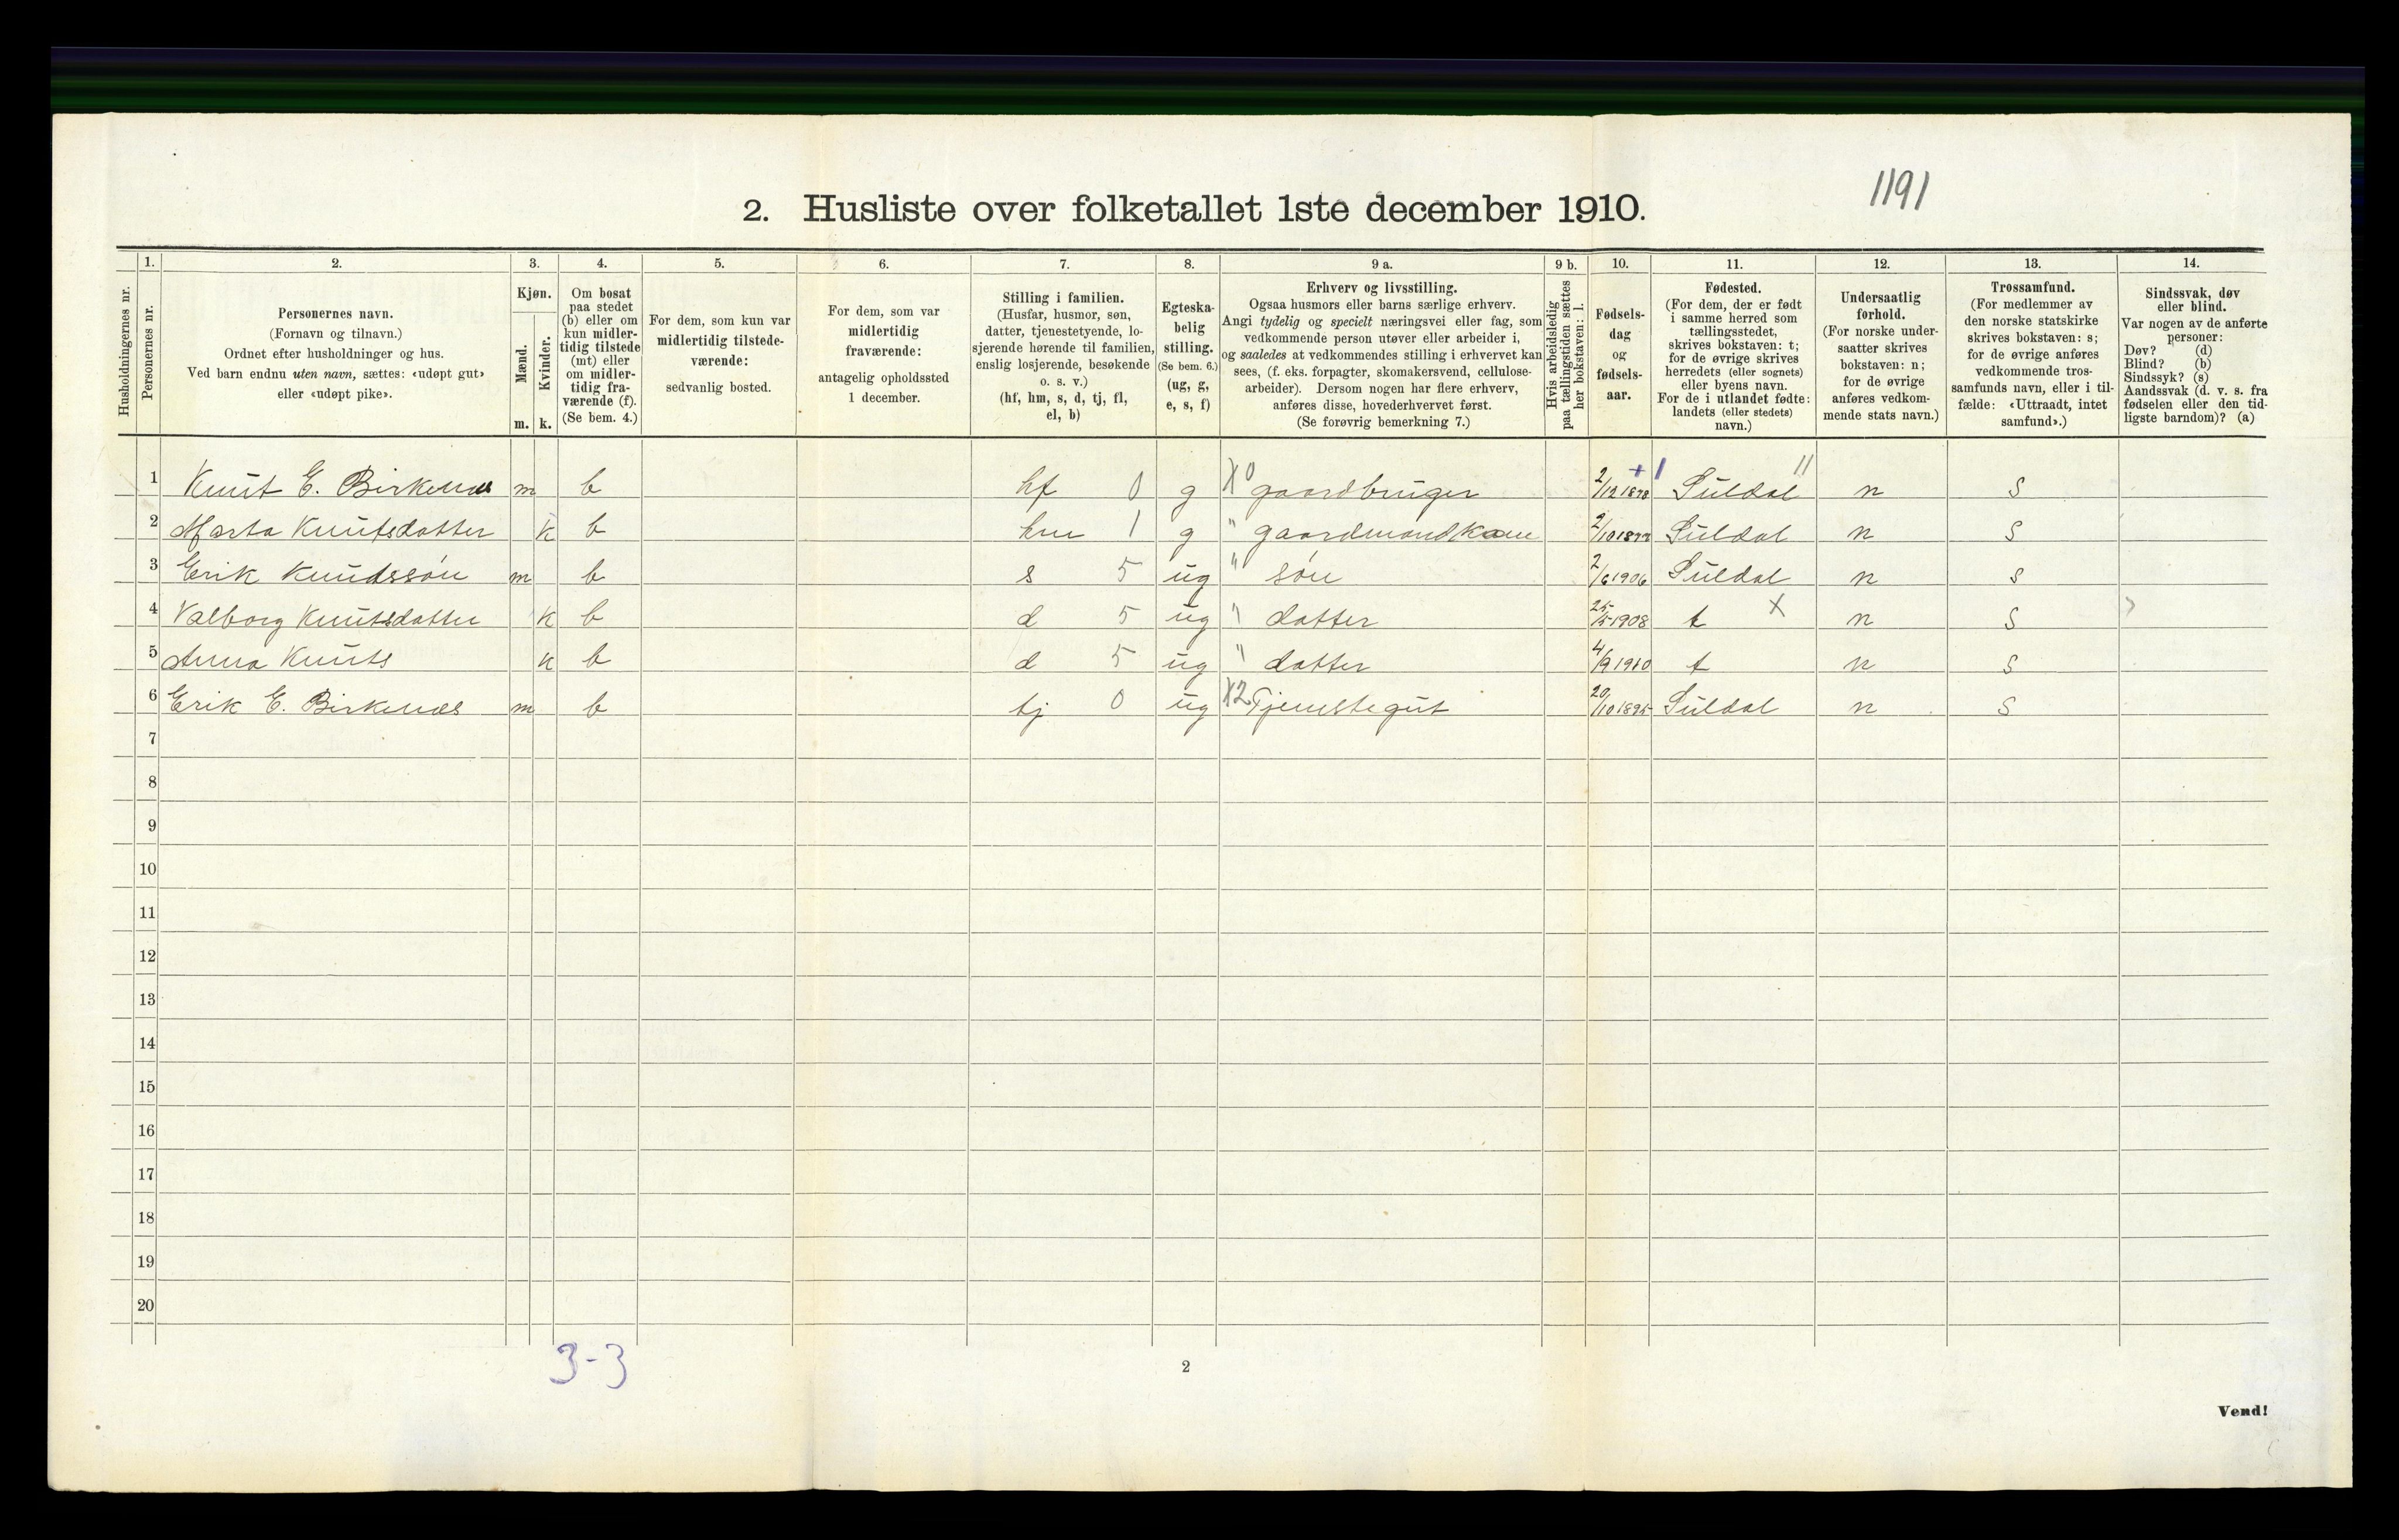 1191
2. Husliste over folketallet 1ste december 1910.
1. 2. 3. 4. 5. 6. 7. 8. 9 a. 9 b. 10. 11. 12. 13. 14.
Husholdningernes nr.
Personernes nr.
Personernes navn.
(Fornavn og tilnavn.)
Ordnet efter husholdninger og hus.
Ved barn endnu uten navn, sættes: «udøpt gut»
eller «udøpt pike».
Kjøn.
Mænd.
Kvinder.
m. k.
Om bosat
paa stedet
(b) eller om
kun midler-
tidig tilstede
(mt) eller
om midler-
tidig fra-
værende (f).
(Se bem. 4.)
For dem, som kun var
midlertidig tilstede-
værende:
sedvanlig bosted.
For dem, som var
midlertidig
fraværende:
antagelig opholdssted
1 december.
Stilling i familien.
(Husfar, husmor, søn,
datter, tjenestetyende, lo-
sjerende hørende til familien,
enslig losjerende, besøkende
o. s. v.)
(hf, hm, s, d, tj, fl,
el, b)
Egteska-
belig
stilling.
(Se bem. 6.)
(ug, g,
e, s, f)
Erhverv og livsstilling.
Ogsaa husmors eller barns særlige erhverv.
Angi tydelig og specielt næringsvei eller fag, som
vedkommende person utøver eller arbeider i,
og saaledes at vedkommendes stilling i erhvervet kan
sees, (f. eks. forpagter, skomakersvend, cellulose-
arbeider). Dersom nogen har flere erhverv,
anføres disse, hovederhvervet først.
(Se forøvrig bemerkning 7.)
Hvis arbeidsledig
paa tællingstiden sættes
her bokstaven: l.
Fødsels-
dag
og
fødsels-
aar.
Fødested.
(For dem, der er født
i samme herred som
tællingsstedet,
skrives bokstaven: t;
for de øvrige skrives
herredets (eller sognets)
eller byens navn.
For de i utlandet fødte:
landets (eller stedets)
navn.)
Undersaatlig
forhold.
(For norske under-
saatter skrives
bokstaven: n;
for de øvrige
anføres vedkom-
mende stats navn.)
Trossamfund.
(For medlemmer av
den norske statskirke
skrives bokstaven: s;
for de øvrige anføres
vedkommende tros-
samfunds navn, eller i til-
fælde: «Uttraadt, intet
samfund».)
Sindssvak, døv
eller blind.
Var nogen av de anførte
personer:
Døv? (d)
Blind? (b)
Sindssyk? (s)
Aandssvak (d. v. s. fra
fødselen eller den tid-
ligste barndom)? (a)
1 Knut E. Birkenæs m b hf 0 g X0 gaardbruger 2/12 1878 + 1 Suldal 11 n s
2 Marta Knutsdatter k b hm 1 g " gaardmandkone Suldal n s
3 Erik Knudssøn m b s 5 ug " søn 2/6 1906 Suldal n s
4 Valborg Knutsdatter k b d 5 ug " datter 25/5 1908 t X n s
5 Anna Knuts k b d 5 ug " datter 4/9 1910 t n s
6 Erik E. Birkenæs m b tj 0 ug X2 Tjenestegut 20/10 1895 Suldal n s
7
8
9
10
11
12
13
14
15
16
17
18
19
20
3-3
2
Vend!